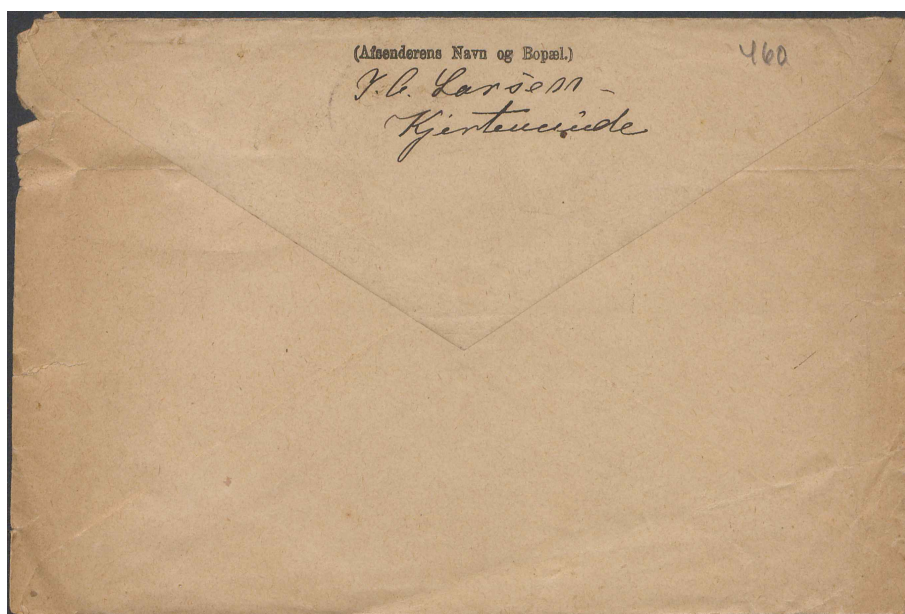 (Afsenderens Navn og Bopæl.)
460
I.A. Larsen -
Kjerteminde